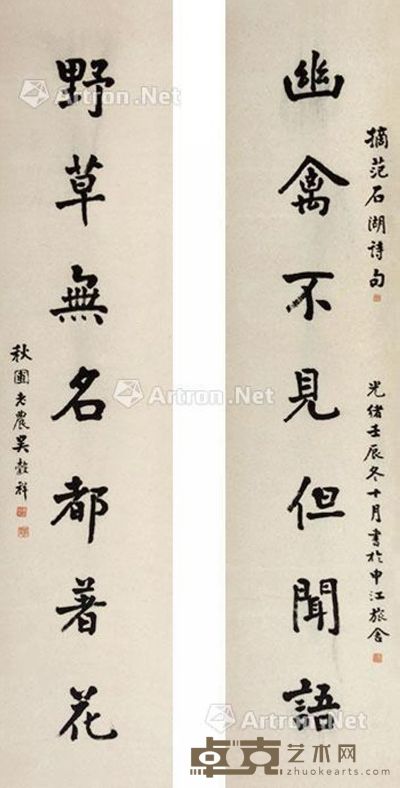 摘范石湖詩句
光緒壬辰冬十月書於申江旅舍
幽禽不見但聞語
野草無名都著花
秋圃老農吳穀祥
Artron.Net
Artron.Net
Artron.Net
Artron.Net
Artron.Net
卓克艺术网
zhuokearts.com